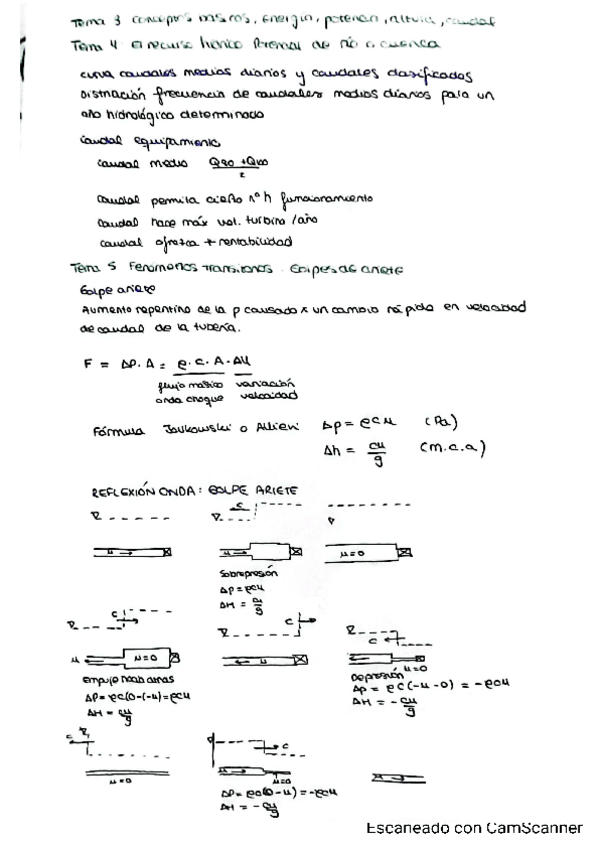 Tema 3 conceptos básicos, Energía, potencia, altura, caudal
Tema 4 El recurso hídrico Potencial de río o cuenca
curva caudales medios diarios y caudales clasificados
Distribución frecuencia de caudales medios diarios para un
año hidrológico determinado
Caudal equipamiento
caudal medio Q80 + Q100 / 2
caudal permita cierto nº h funcionamiento
caudal hace máx vol. turbina / año
caudal ofrezca + rentabilidad
Tema 5 Fenómenos transitorios. Golpes de ariete
Golpe ariete
Aumento repentino de la p causado x un cambio rápido en velocidad
de caudal de la tubería.
F = Δp. A = ρ. c. A. Δu
flujo másico variación
onda choque velocidad
Fórmula Joukowski o Allievi Δp = ρcu (Pa)
Δh = cu/g (m.c.a)
REFLEXIÓN ONDA: GOLPE ARIETE
c
u u u=0
Sobrepresión
Δp = ρcu
ΔH = cu/g
c c c
u u=0 u u=0
Empuje hacia atrás
Δp = ρc(0-(-u)) = ρcu
ΔH = cu/g
Depresión
Δp = ρc(-u-0) = -ρcu
ΔH = -cu/g
c c
u=0 u=0
Δp = ρc(0-u) = -ρcu
ΔH = -cu/g
Escaneado con CamScanner